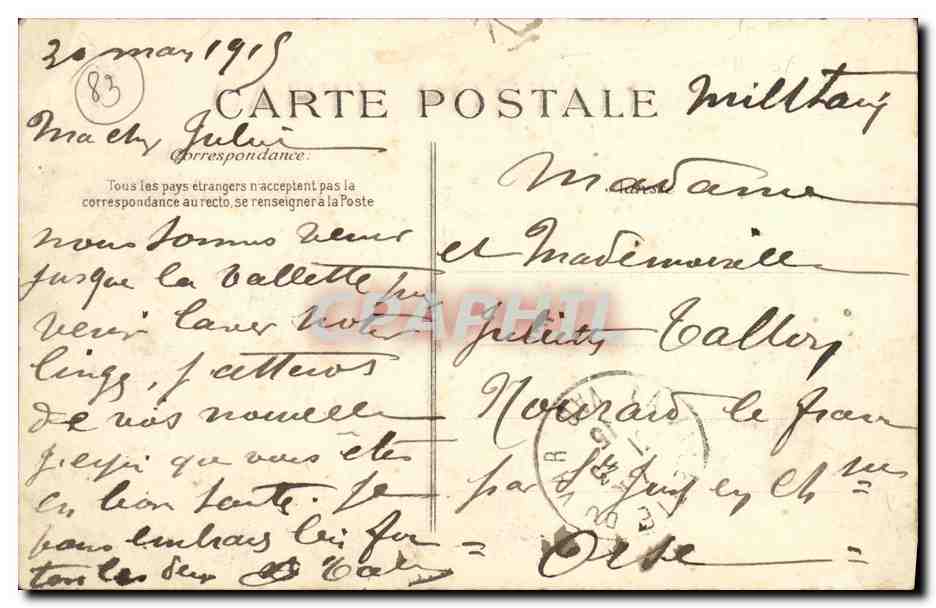 30 mai 1915
83
CARTE POSTALE
Militaire
Ma chère Juliette
Correspondance:
Tous les pays étrangers n'acceptent pas la
correspondance au recto, se renseigner à la Poste
nous sommes venus
jusque la Vallette pour
venir laver notre
linge, j'attends
de vos nouvelles
j'espère que vous êtes
en bonne santé. Je
vous embrasse bien fort
toutes les deux
Madame
et Mademoiselle
Juliette
Nourard le franc
par St Just en Chée
= Oise =
CPAPHIL
VAR